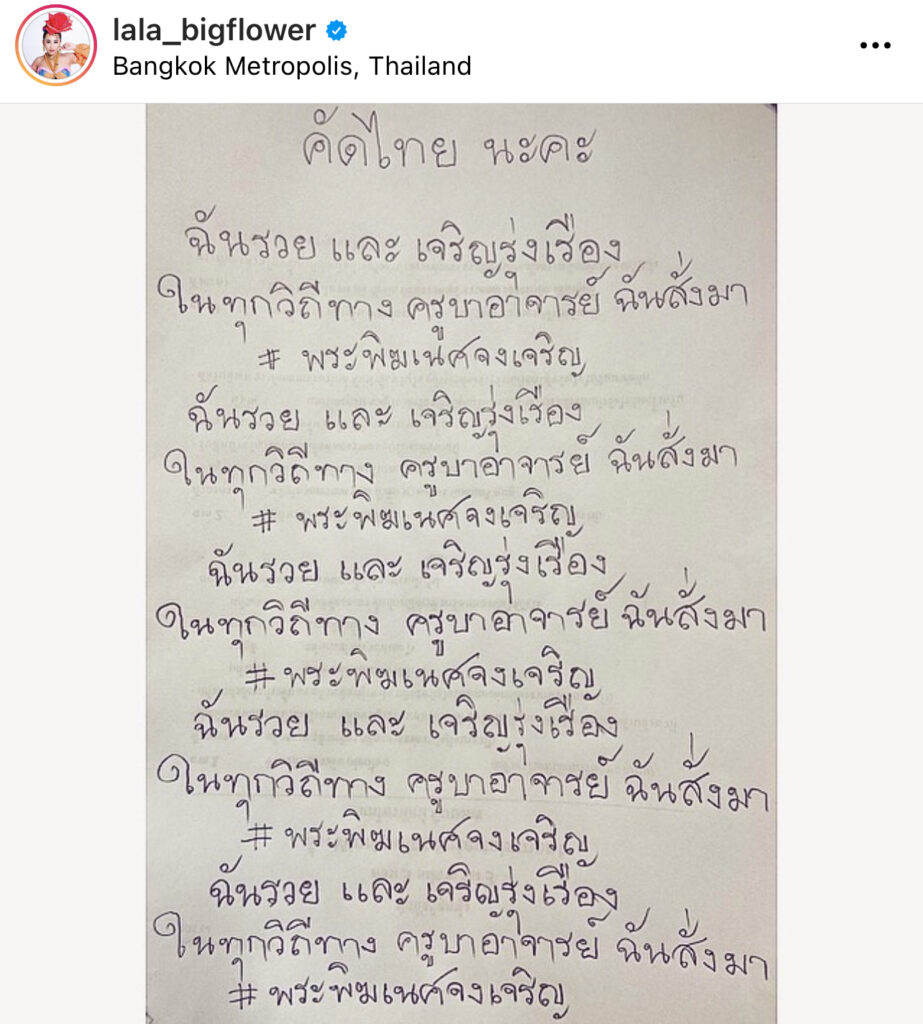 lala_bigflower
Bangkok Metropolis, Thailand
คัดไทย นะคะ
ฉันรวย และ เจริญรุ่งเรือง
ในทุกวิถีทาง ครูบาอาจารย์ ฉันสั่งมา
# พระพิฆเนศจงเจริญ
ฉันรวย และ เจริญรุ่งเรือง
ในทุกวิถีทาง ครูบาอาจารย์ ฉันสั่งมา
# พระพิฆเนศจงเจริญ
ฉันรวย และ เจริญรุ่งเรือง
ในทุกวิถีทาง ครูบาอาจารย์ ฉันสั่งมา
# พระพิฆเนศจงเจริญ
ฉันรวย และ เจริญรุ่งเรือง
ในทุกวิถีทาง ครูบาอาจารย์ ฉันสั่งมา
# พระพิฆเนศจงเจริญ
ฉันรวย และ เจริญรุ่งเรือง
ในทุกวิถีทาง ครูบาอาจารย์ ฉันสั่งมา
# พระพิฆเนศจงเจริญ